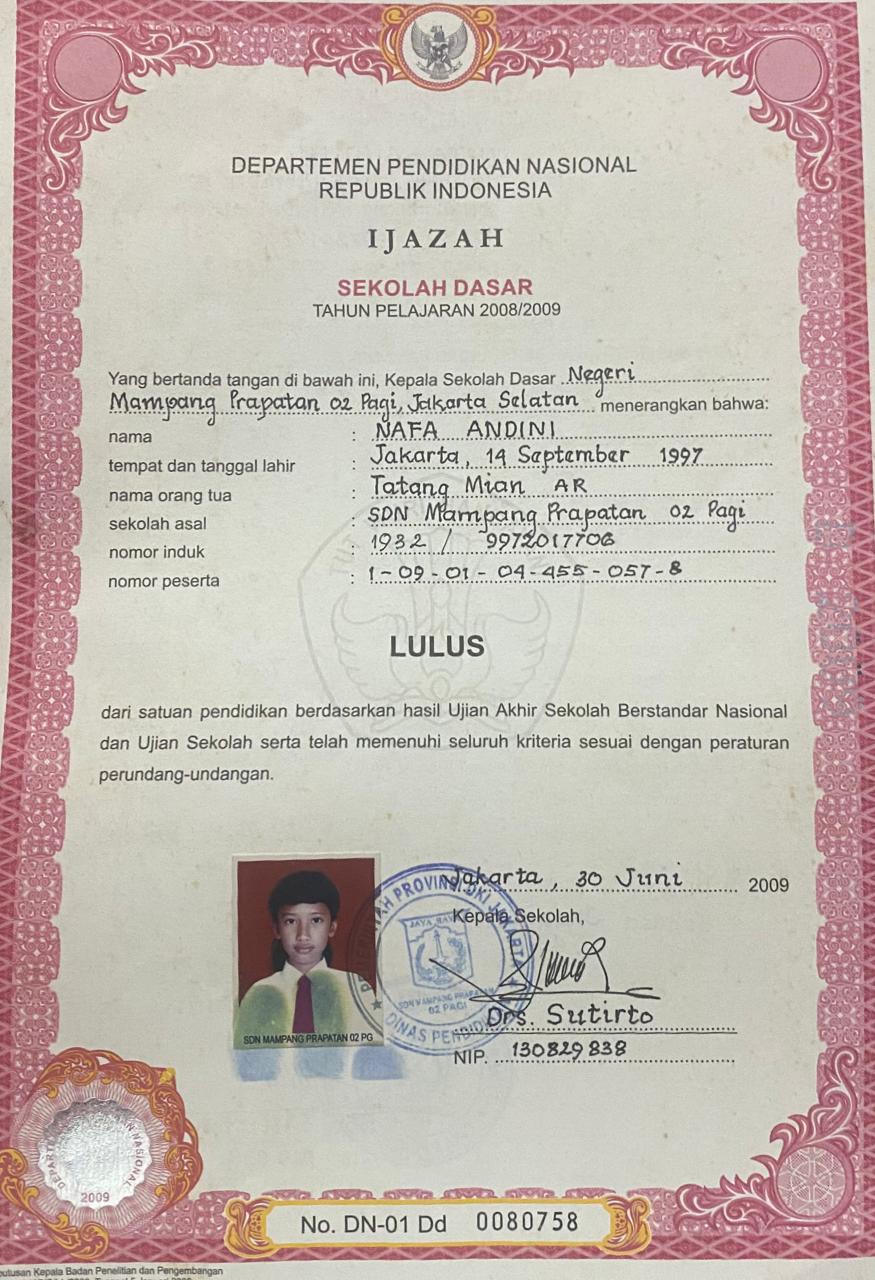 DEPARTEMEN PENDIDIKAN NASIONAL
REPUBLIK INDONESIA
IJAZAH
SEKOLAH DASAR
TAHUN PELAJARAN 2008/2009
Yang bertanda tangan di bawah ini, Kepala Sekolah Dasar Negeri
Mampang Prapatan 02 Pagi, Jakarta Selatan menerangkan bahwa:
nama : NAFA ANDINI
tempat dan tanggal lahir : Jakarta, 14 September 1997
nama orang tua : Tatang Mian AR
sekolah asal : SDN Mampang Prapatan 02 Pagi
nomor induk : 1932 / 9972017706
nomor peserta : 1-09-01-04-455-057-8
LULUS
dari satuan pendidikan berdasarkan hasil Ujian Akhir Sekolah Berstandar Nasional
dan Ujian Sekolah serta telah memenuhi seluruh kriteria sesuai dengan peraturan
perundang-undangan.
Jakarta, 30 Juni 2009
Kepala Sekolah,
PEMERINTAH PROVINSI DKI JAKARTA
JAYA RAYA
SDN MAMPANG PRAPATAN
02 PAGI
DINAS PENDIDIKAN
Drs. Sutirto
NIP. 130829838
SDN MAMPANG PRAPATAN 02 PG
2009
No. DN-01 Dd 0080758
Kepala Badan Penelitian dan Pengembangan